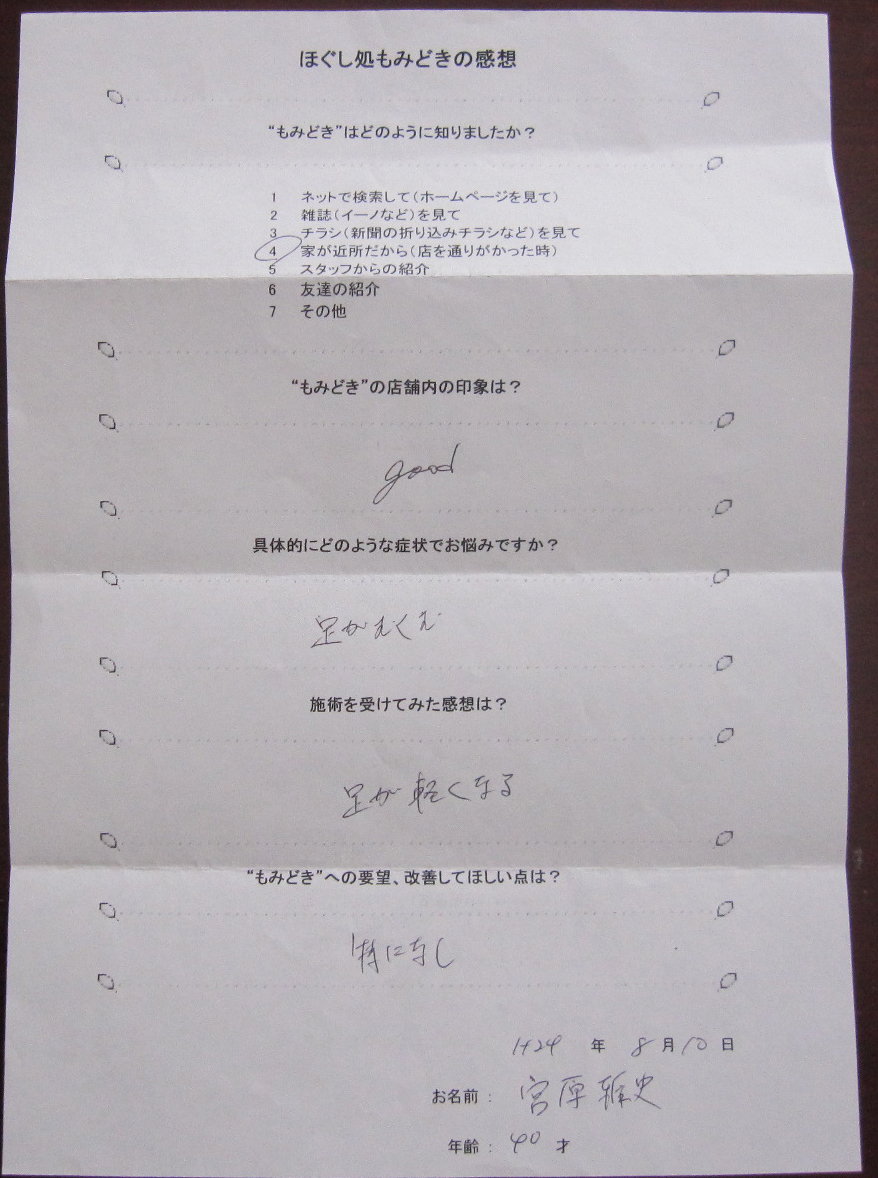 ほぐし処もみどきの感想
“もみどき”はどのように知りましたか？
1 ネットで検索して（ホームページを見て）
2 雑誌（イーノなど）を見て
3 チラシ（新聞の折り込みチラシなど）を見て
4 家が近所だから（店を通りがかった時）
5 スタッフからの紹介
6 友達の紹介
7 その他
“もみどき”の店舗内の印象は？
good
具体的にどのような症状でお悩みですか？
足がむくむ
施術を受けてみた感想は？
足が軽くなる
“もみどき”への要望、改善してほしい点は？
特になし
H24 年 8 月 10 日
お名前： 宮原 史
年齢： 40 才